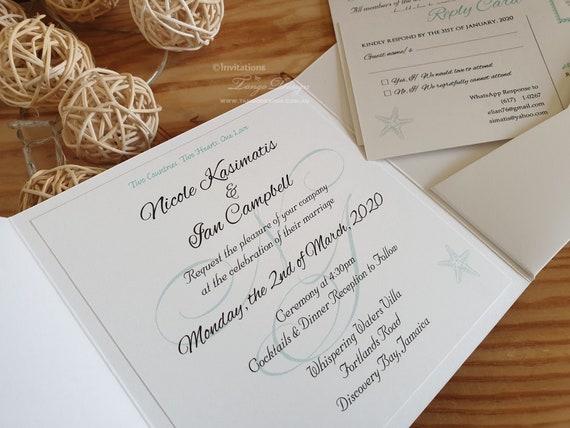 Two Countries, Two Hearts, One Love
Nicole Kasimatis
&
Ian Campbell
Request the pleasure of your company
at the celebration of their marriage
Monday, the 2nd of March, 2020
Ceremony at 4:30pm
Cocktails & Dinner Reception to Follow
Whispering Waters Villa
Fortlands Road
Discovery Bay, Jamaica
all members of the
Reply Card
KINDLY RESPOND BY THE 31ST OF JANUARY, 2020
Guest name/s
Yes, I/ We would love to attend.
No, I/ We regretfully cannot attend.
WhatsApp Response to
(617) 1-0267
elian76@gmail.com
simatis@yahoo.com
©Invitations
by
Tango Design
WWW.TANGODESIGN.COM.AU